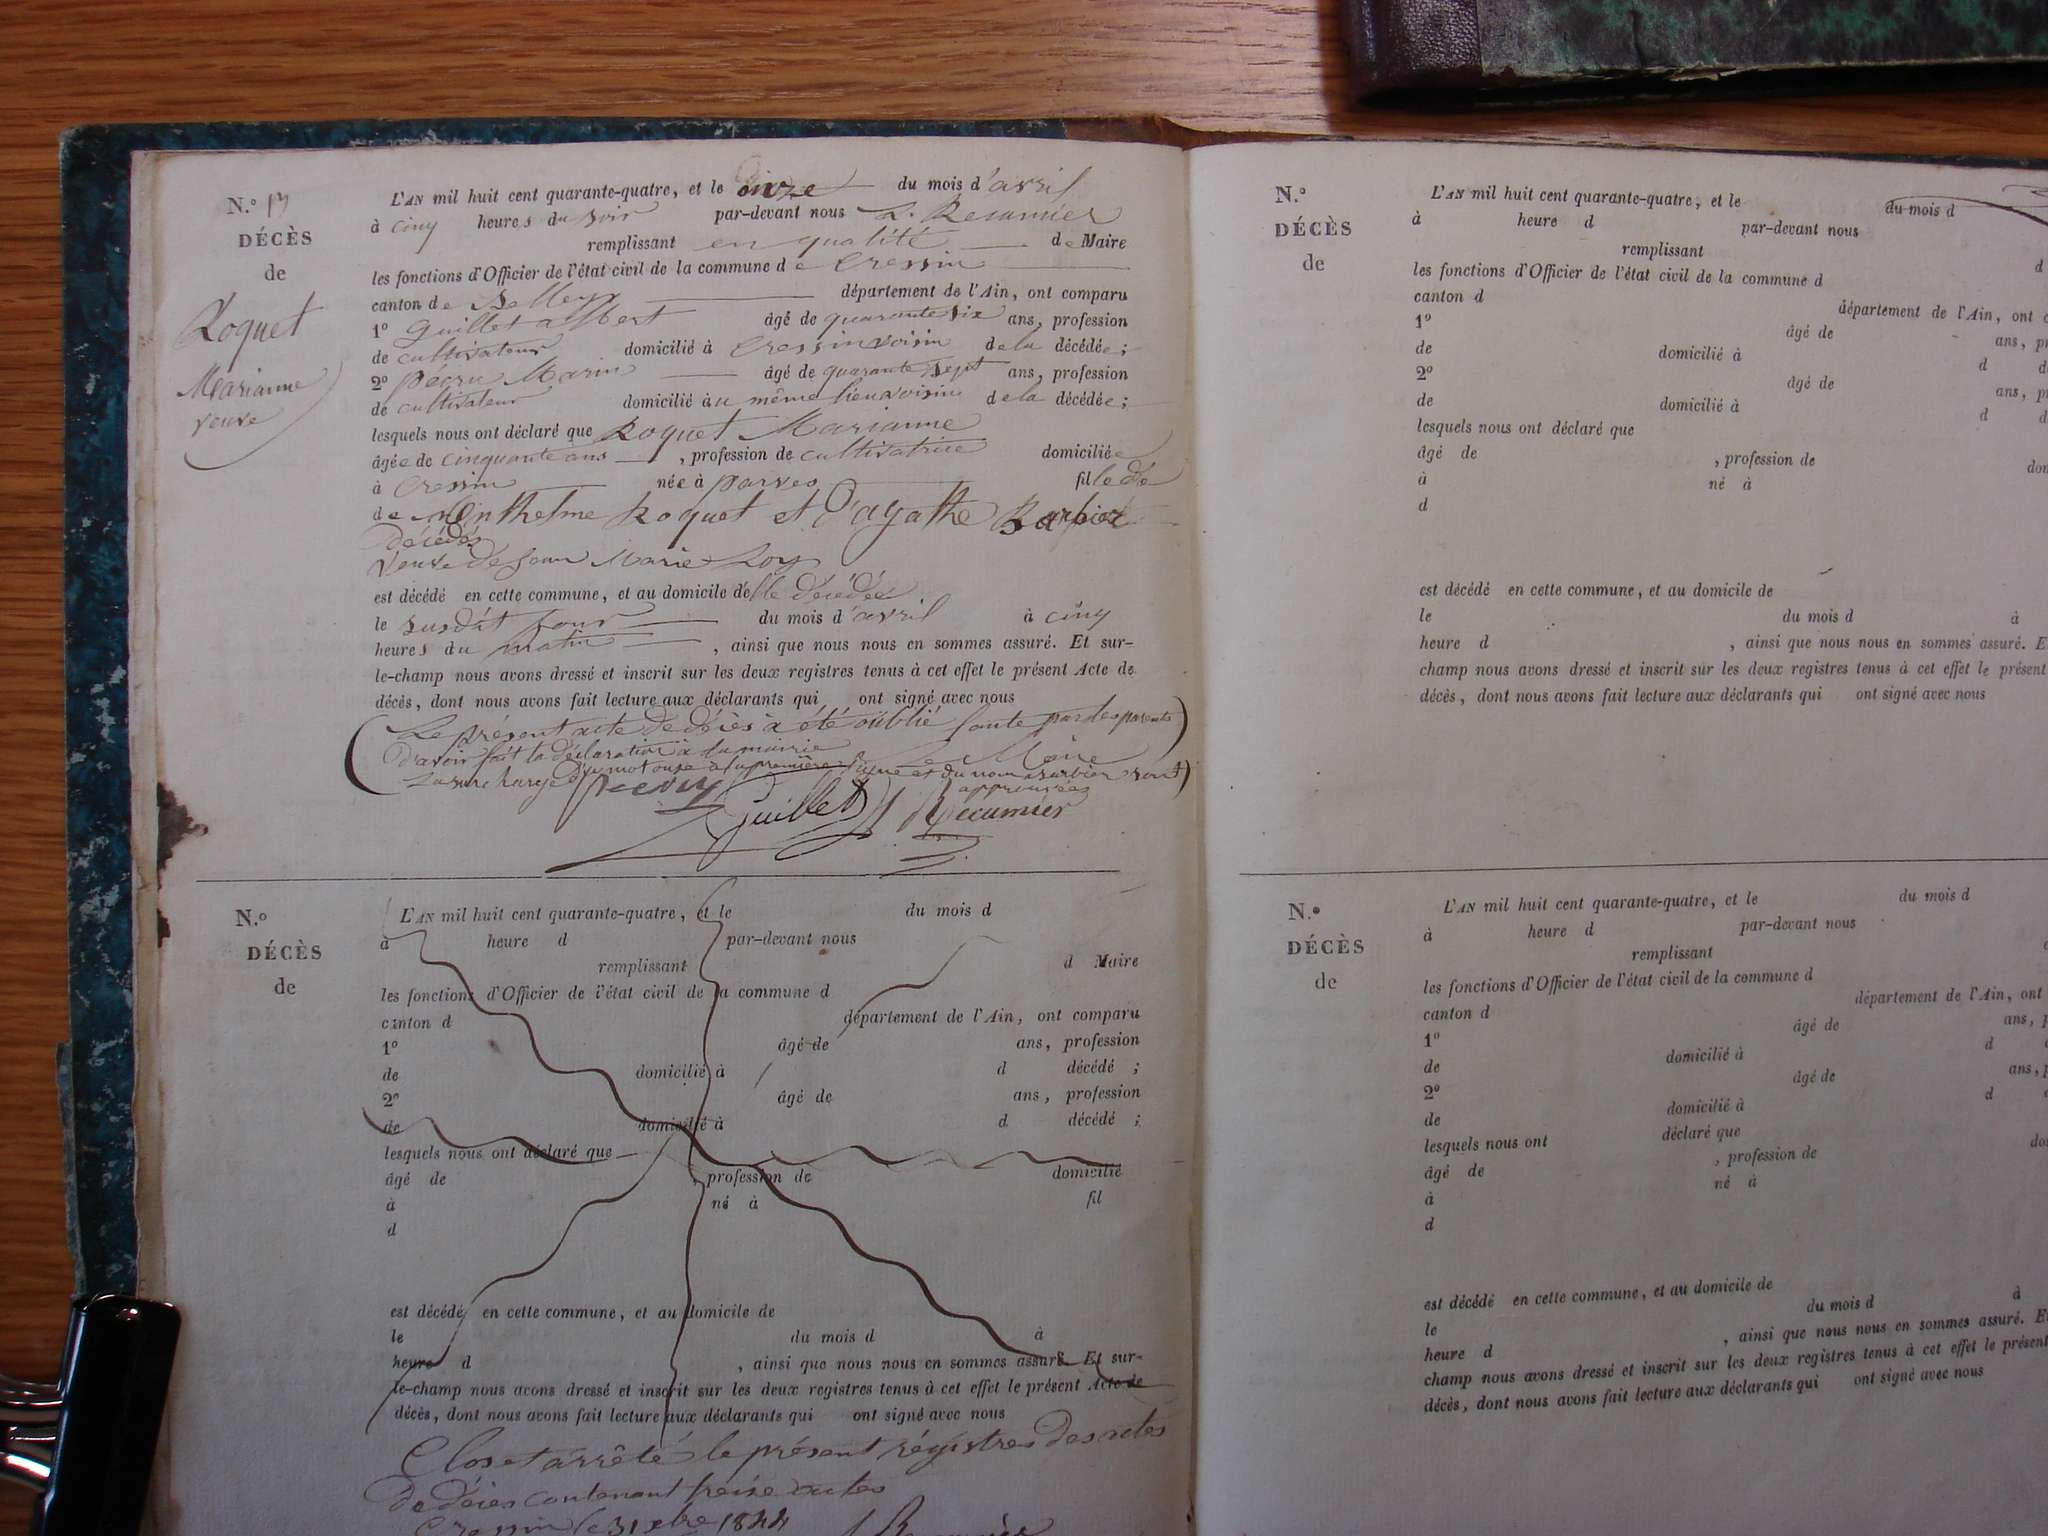 N.º 13
DÉCÈS
de
Roquet
Marianne
veuve
L'AN mil huit cent quarante-quatre, et le onze du mois d'avril
à cinq heures du soir par-devant nous L. Recumier
remplissant en qualité de Maire
les fonctions d'Officier de l'état civil de la commune de Cressin
canton de Belley département de l'Ain, ont comparu
1º Guillet albert âgé de quarante six ans, profession
de cultivateur domicilié à Cressin voisin de la décédée;
2º pécru Marin âgé de quarante sept ans, profession
de cultivateur domicilié au même lieu voisin de la décédée;
lesquels nous ont déclaré que Roquet Marianne
âgée de cinquante ans, profession de cultivatrice domiciliée
à Cressin née à parves fille de
de Anthelme Roquet et d'agathe Barbier
décédés
veuve de jean Marie Loy
est décédé en cette commune, et au domicile de lle décédée
le susdit jour du mois d'avril à cinq
heures du matin, ainsi que nous nous en sommes assuré. Et sur-
le-champ nous avons dressé et inscrit sur les deux registres tenus à cet effet le présent Acte de
décès, dont nous avons fait lecture aux déclarants qui ont signé avec nous
(Le présent acte de décès à été oublié faute par les parents
d'avoir fait la déclaration à la mairie Le Maire
La surcharge du mot onze à la première ligne et du nom barbier sont)
approuvées
Guillet Recumier
N.º
DÉCÈS
de
L'AN mil huit cent quarante-quatre, et le du mois d
à heure d par-devant nous
remplissant d Maire
les fonctions d'Officier de l'état civil de la commune d
canton d département de l'Ain, ont comparu
1º âgé de ans, profession
de domicilié à d décédé ;
2º âgé de ans, profession
de domicilié à d décédé ;
lesquels nous ont déclaré que
âgé de , profession de domicilié
à né à fil
d
est décédé en cette commune, et au domicile de
le du mois d à
heure d , ainsi que nous nous en sommes assuré. Et sur-
le-champ nous avons dressé et inscrit sur les deux registres tenus à cet effet le présent Acte de
décès, dont nous avons fait lecture aux déclarants qui ont signé avec nous
Clos et arrêté le présent régistres des actes
de décès contenant treize actes
Cressin le 31 xbre 1844
N.º
DÉCÈS
de
L'AN mil huit cent quarante-quatre, et le du mois d
à heure d par-devant nous
remplissant d
les fonctions d'Officier de l'état civil de la commune d
canton d département de l'Ain, ont
1º âgé de ans,
de domicilié à d
2º âgé de ans,
de domicilié à d
lesquels nous ont déclaré que
âgé de , profession de
à né à
d
est décédé en cette commune, et au domicile de
le du mois d à
heure d , ainsi que nous nous en sommes assuré.
champ nous avons dressé et inscrit sur les deux registres tenus à cet effet le présent
décès, dont nous avons fait lecture aux déclarants qui ont signé avec nous
N.º
DÉCÈS
de
L'AN mil huit cent quarante-quatre, et le du mois d
à heure d par-devant nous
remplissant
les fonctions d'Officier de l'état civil de la commune d
canton d département de l'Ain, ont
1º âgé de ans,
de domicilié à d
2º âgé de ans,
de domicilié à d
lesquels nous ont déclaré que
âgé de , profession de
à né à
d
est décédé en cette commune, et au domicile de
le du mois d à
heure d , ainsi que nous nous en sommes assuré.
champ nous avons dressé et inscrit sur les deux registres tenus à cet effet le présent
décès, dont nous avons fait lecture aux déclarants qui ont signé avec nous